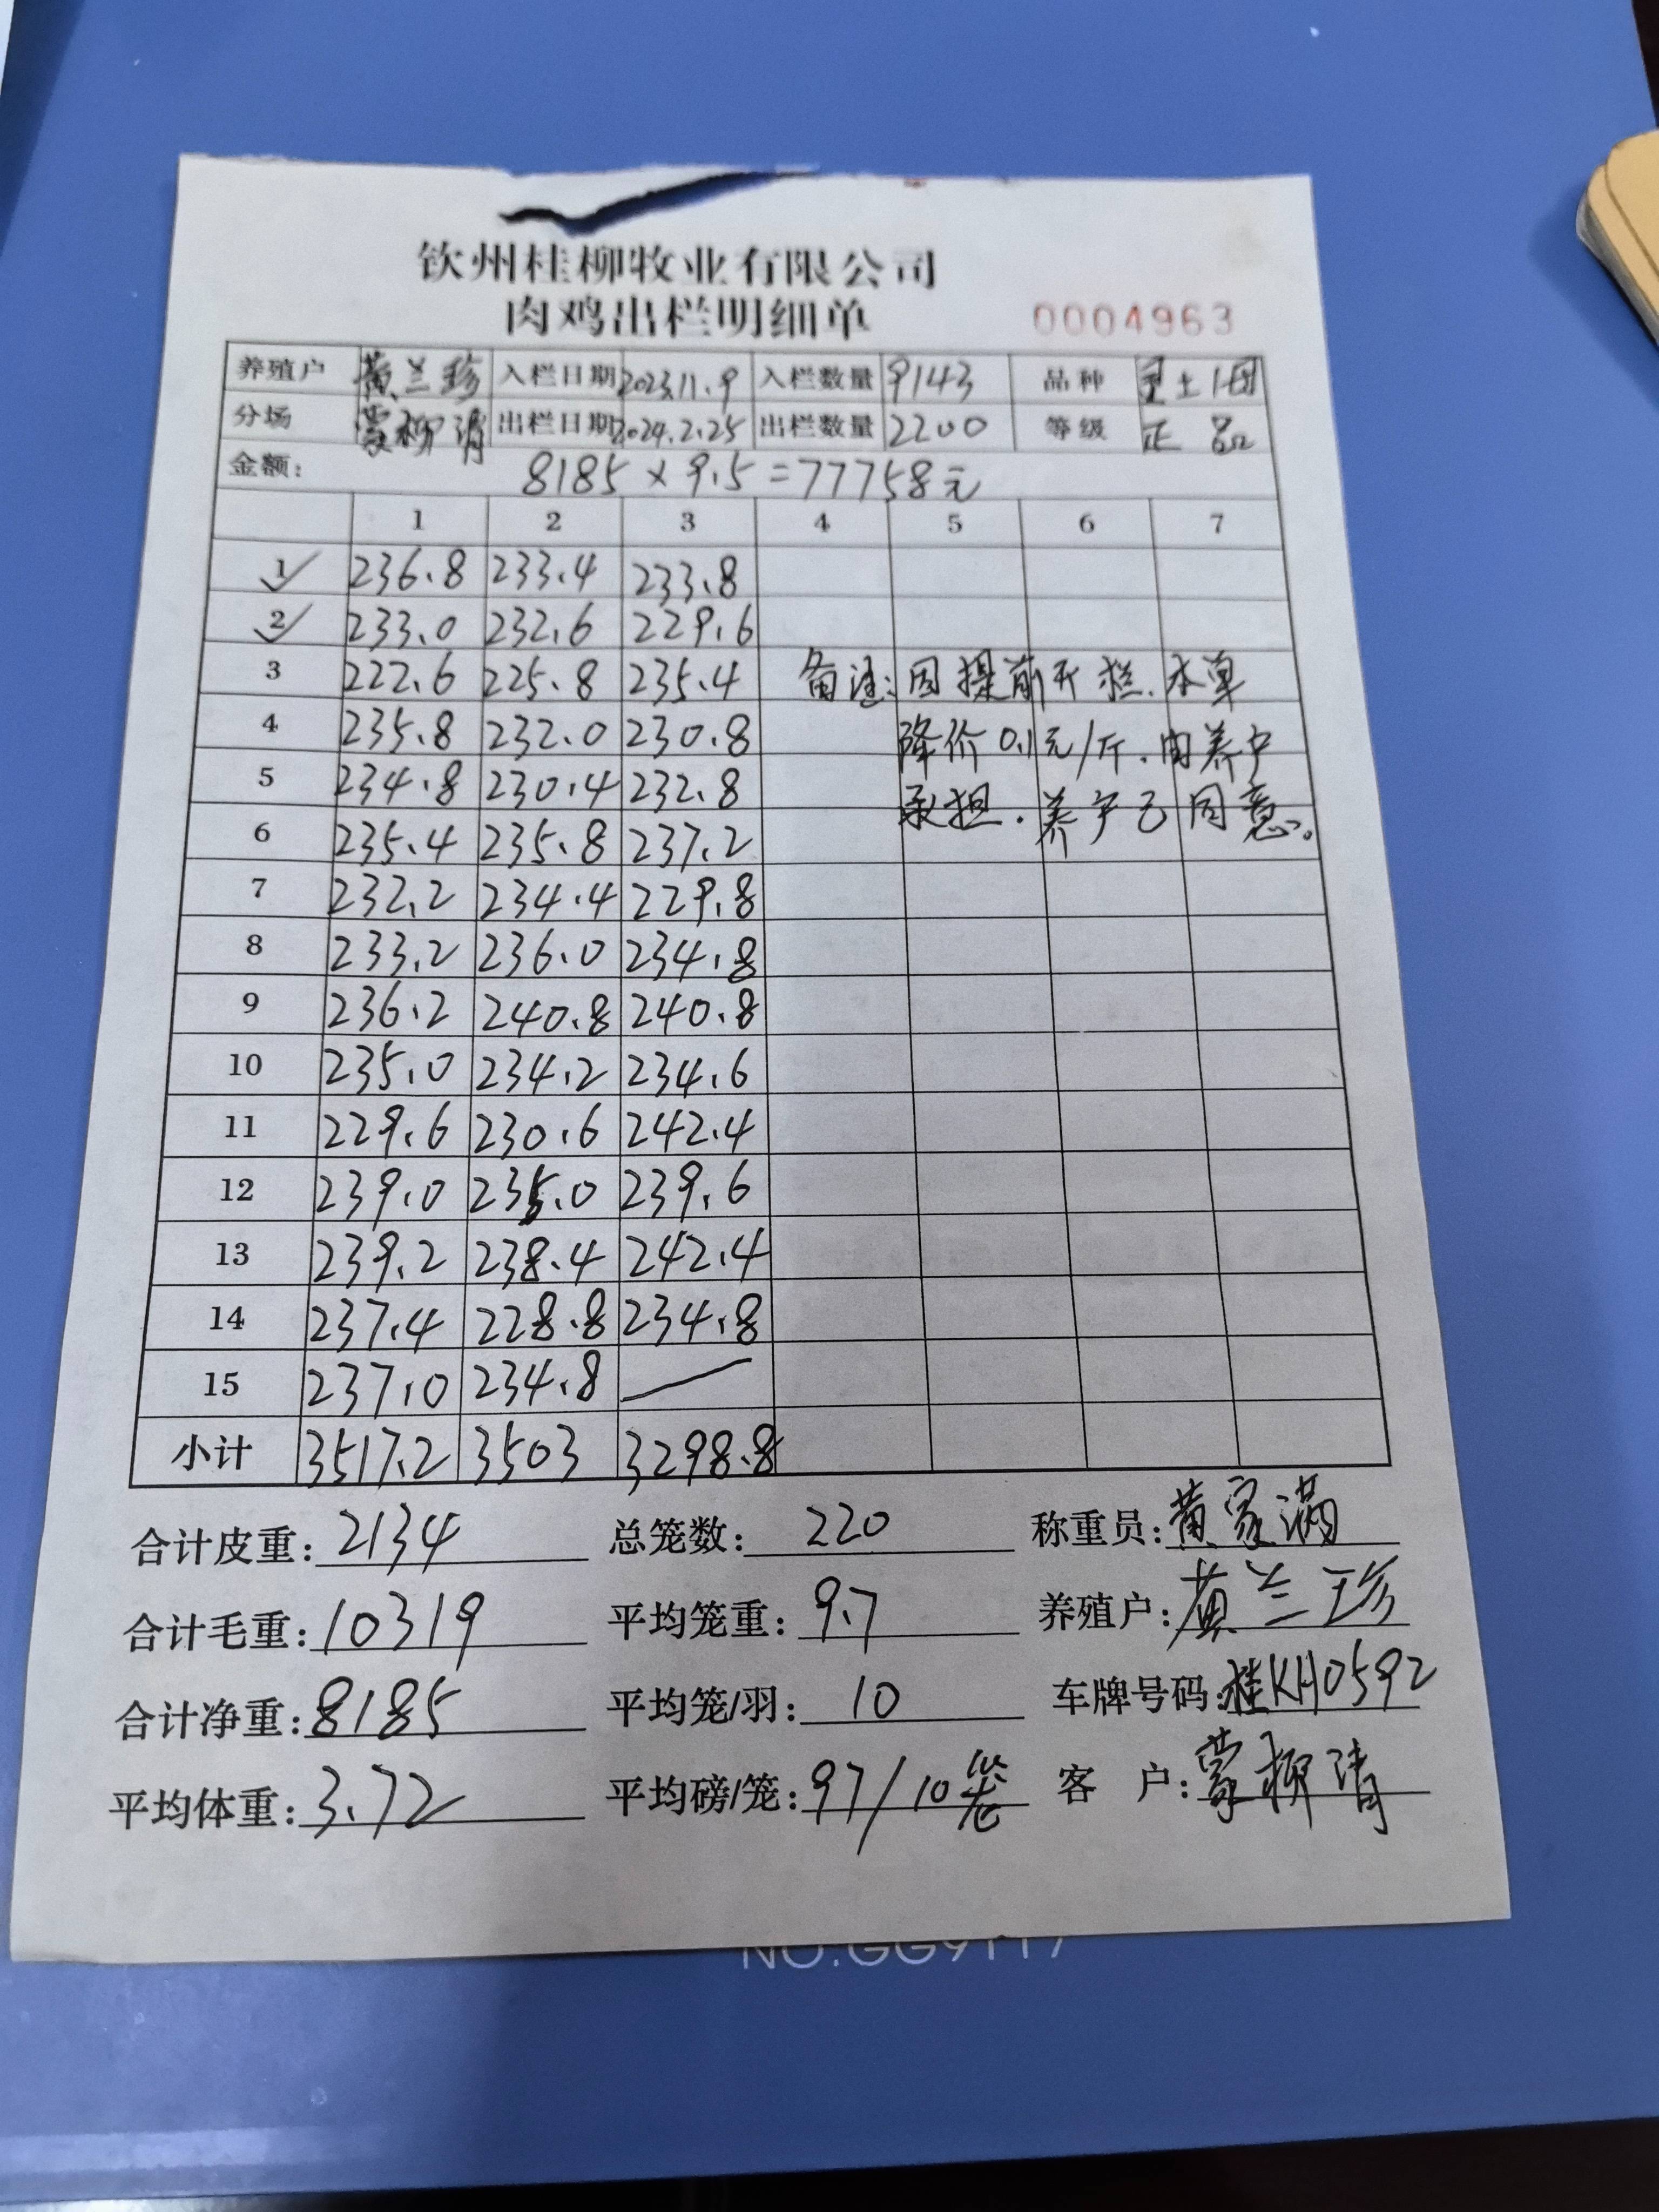 钦州桂柳牧业有限公司
肉鸡出栏明细单 0004963
养殖户 黄兰珍 入栏日期 2023.11.9 入栏数量 9143 品种 土1母
分场 蒙柳清 出栏日期 2024.2.25 出栏数量 2200 等级 正品
金额: 8185×9.5=77758元
1 2 3 4 5 6 7
1 236.8 233.4 233.8
2 233.0 232.6 229.6
3 222.6 225.8 235.4 备注:因提前开栏.本单
4 235.8 232.0 230.8 降价0.1元/斤.由养户
5 234.8 230.4 232.8 承担.养户已同意。
6 235.4 235.8 237.2
7 232.2 234.4 229.8
8 233.2 236.0 234.8
9 236.2 240.8 240.8
10 235.0 234.2 234.6
11 229.6 230.6 242.4
12 239.0 235.0 239.6
13 239.2 238.4 242.4
14 237.4 228.8 234.8
15 237.0 234.8
小计 3517.2 3503 3298.8
合计皮重: 2134 总笼数: 220 称重员: 黄家满
合计毛重: 10319 平均笼重: 9.7 养殖户: 黄兰珍
合计净重: 8185 平均笼/羽: 10 车牌号码: 桂KH0592
平均体重: 3.72 平均磅/笼: 97/10笼 客 户: 蒙柳清
NO.GG9117